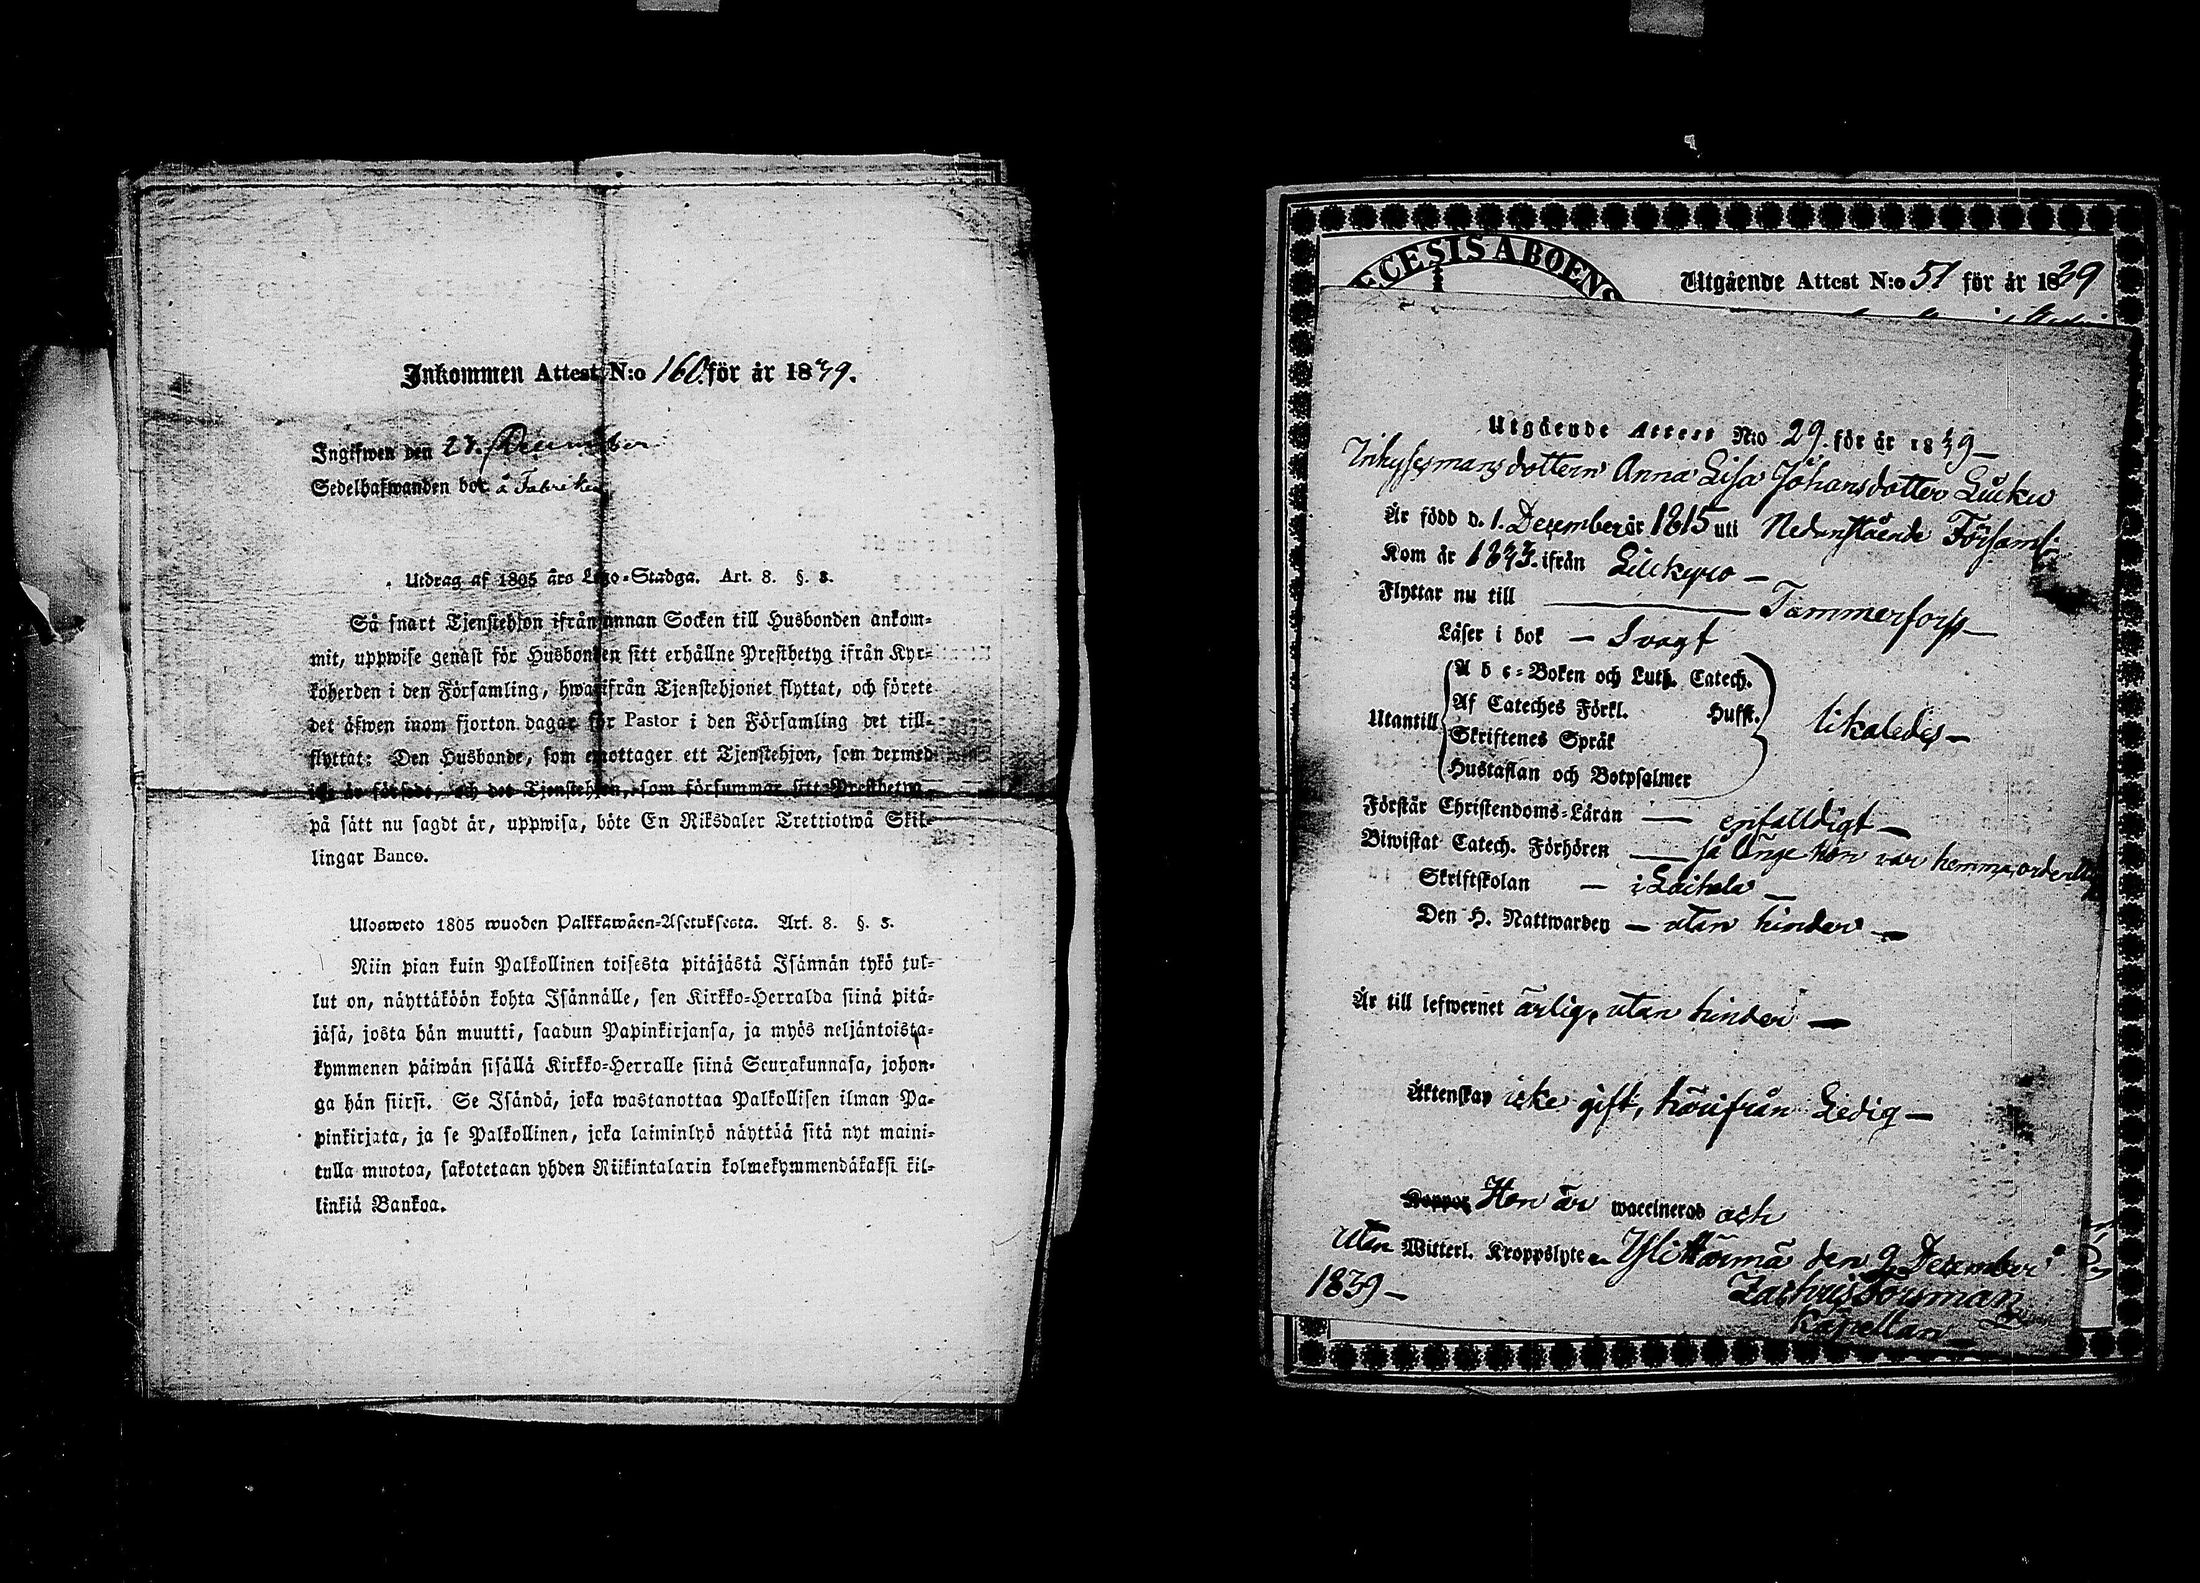 Inkommen Attest N:o 160. för år 1839.
Ingifwen den 23. December
Sedelhafwanden bor å Fabriken
Utdrag af 1805 års Lego-Stadga. Art. 8. §. 5.
Så snart Tjenstehjon ifrån annan Socken till Husbonden ankom-
mit, uppwise genast för Husbonden sitt erhållne Prestbetyg ifrån Kyr-
koherden i den Församling, hwarifrån Tjenstehjonet flyttat, och förete
det äfwen inom fjorton dagar för Pastor i den Församling det till-
flyttat: Den Husbonde, som emottager ett Tjenstehjon, som dermed
icke är försedt, och det Tjenstehjon, som försummar sitt Prestbetyg
på sätt nu sagdt är, uppwisa, böte En Riksdaler Trettiotwå Skil-
lingar Banco.
Ulosweto 1805 wuoden Palkkawäen-Asetuksesta. Art. 8. §. 5.
Niin pian kuin Palkollinen toisesta pitäjästä Isännän tykö tul-
lut on, näyttäköön kohta Isännälle, sen Kirkko-Herralda siinä pitä-
jäsä, josta hän muutti, saadun Papinkirjansa, ja myös neljäntoista-
kymmenen päiwän sisällä Kirkko-Herralle siinä Seurakunnasa, johon-
ga hän siirsi. Se Isändä, joka wastanottaa Palkollisen ilman Pa-
pinkirjata, ja se Palkollinen, joka laiminlyö näyttää sitä nyt maini-
tulla muotoa, sakotetaan yhden Riikintalarin kolmekymmendäkaksi kil-
linkiä Bankoa.
ECESIS ABOENS
Utgående Attest N:o 51 för år 1839
Utgående Attest N:o 29. för år 1839
Inhysesmansdottern Anna Lisa Johansdotter Luuku
Är född d. 1. December år 1815 uti Nedanstående Församl.
Kom år 1833. ifrån
Flyttar nu till — Tammerfors
Läser i bok — Svagt
Abc-Boken och Luth. Catech.
Af Cateches Förkl. Hufst.
Utantill
Skriftenes Språk
Hustaflan och Botpsalmer
likaledes
Förstår Christendoms-Läran — enfalldigt
Biwistat Catech. Förhören — så länge hon var hemma,
Skriftskolan — i
Den H. Nattwarden — utan hinder
Är till lefwernet ärlig, utan hinder
Äktenskap icke gift, härifrån Ledig
Koppor Hon är waccinerad och
utan Witterl. Kroppslyte Ylihärmä den 9 December
1839
Forsman
Kapellan